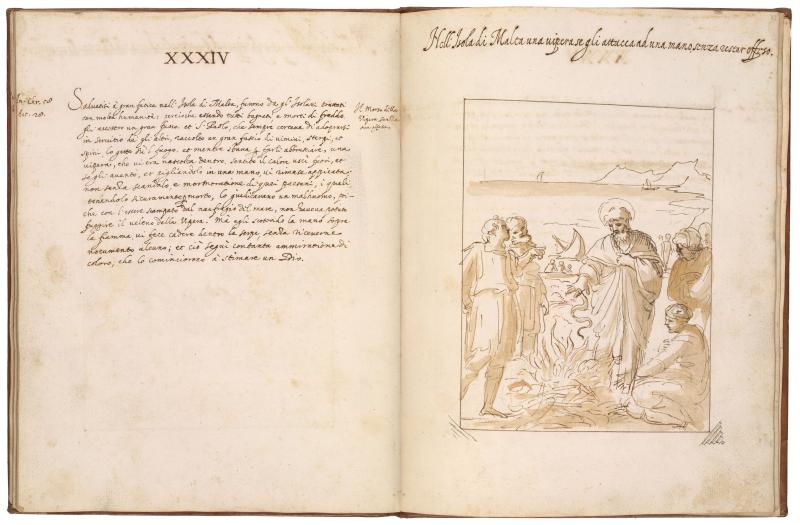 XXXIV
Salvatisi à gran fatica nell' Isola di Malta, furono da gl' Isolani trattati
con molta humanità; perciòche essendo tutti bagnati, e morti di freddo
gli accesero un gran fuoco. et S. Paolo, che sempre cercava di adoprarsi
in servitio de gli altri, raccolto un gran fascio di vimini, sterpi, et
spini lo getta di l' fuoco. et mentre stava à farli abbruciare, una
vipera, che vi era nascosta dentro, sentito il calore uscì fuori, et
se gli avventò, et pigliandolo in una mano vi rimase appiccata
non senza scandalo, e mormoratione di quei paesani, i quali
tenendolo sicuramente morto, lo giudicavano un malhuomo, poi-
che con l' essere scampato dal naufragio del mare, non haveva potuto
fuggire il veleno della vipera. Mà egli scotendo la mano sopra
la fiamma vi fece cadere dentro la serpe, senza riceverne
nocumento alcuno; et ciò seguì con tanta ammiratione di
coloro, che lo cominciorno à stimare un Dio.
Act. 28.
Il Morso della
Vipera
Nell' Isola di Malta una vipera se gli attacca ad una mano, senza restar offeso.